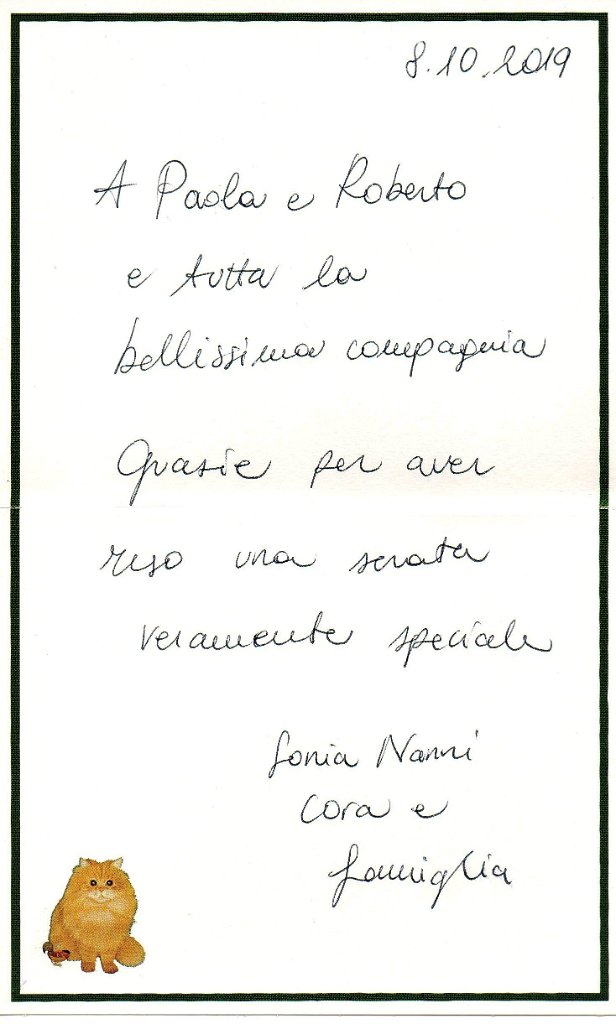 8.10.2019
A Paola e Roberto
e tutta la
bellissima compagnia
Grazie per aver
reso una serata
veramente speciale
Sonia Nanni
Cora e
famiglia